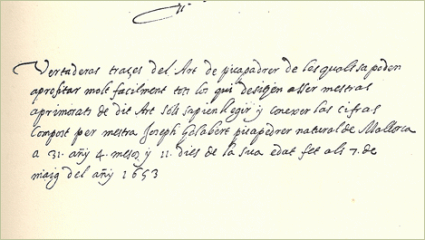 Vertaderas traçes del Art de picapadrer de les quals sa poden
aprofitar molt facilment tots los qui desigen asser mestras
aprimorats de dit Art sols sapien llegir y conexer las cifras
Compost per mestra Joseph Gelabert picapedrer natural de Mallorca
a 31. añy 4. mesos y 11. dies de la sua edat fet als 7. de
maig del añy 1653